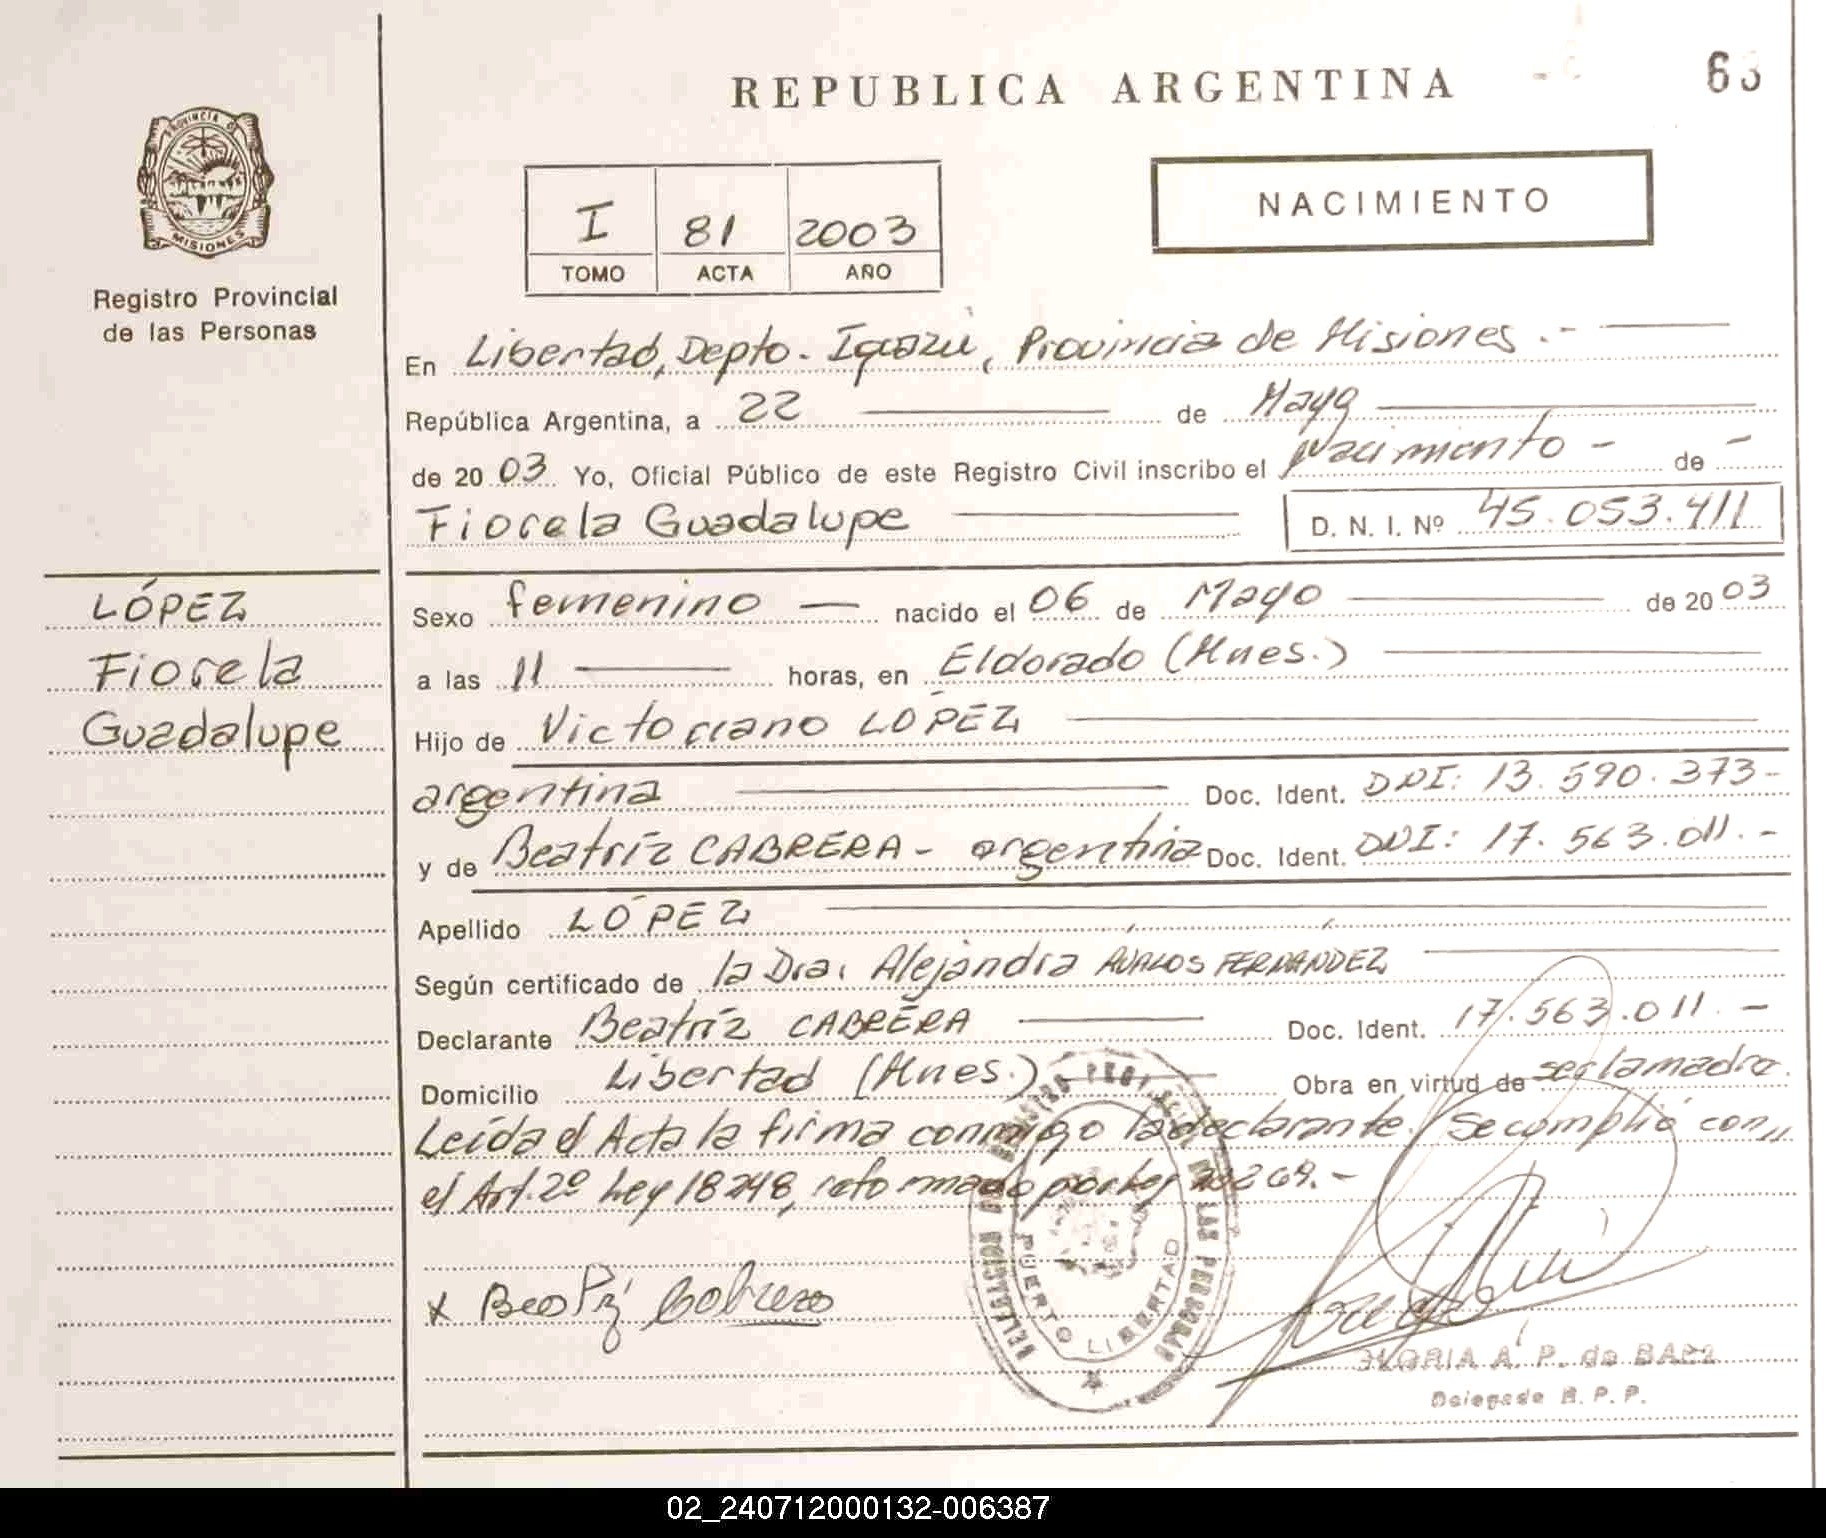 REPUBLICA ARGENTINA
63
PROVINCIA D
MISIONES
Registro Provincial
de las Personas
I 81 2003
TOMO ACTA AÑO
NACIMIENTO
En Libertad, Depto. Iguazú, Provincia de Misiones.-
República Argentina, a 22 de Mayo
de 2003 Yo, Oficial Público de este Registro Civil inscribo el nacimiento - de -
Fiorela Guadalupe D. N. I. Nº 45.053.411
LÓPEZ
Fiorela
Guadalupe
Sexo femenino — nacido el 06 de Mayo de 2003
a las 11 horas, en Eldorado (Mnes.)
Hijo de Victoriano LÓPEZ
argentina Doc. Ident. DNI: 13.590.373-
y de Beatríz CABRERA - argentina Doc. Ident. DNI: 17.563.011.-
Apellido LÓPEZ
Según certificado de la Dra. Alejandra AVALOS FERNANDEZ
Declarante Beatríz CABRERA Doc. Ident. 17.563.011.-
Domicilio Libertad (Mnes.) Obra en virtud de ser la madre.
Leída el Acta la firma conmigo la declarante. Se cumplió con,,
el Art. 2º Ley 18248, reformado por Ley 269.-
x Beatriz Cabrera
DELEGACION DEL REGISTRO PROVINCIAL DE LAS PERSONAS
PUERTO LIBERTAD
GLORIA A. P. de BAEZ
Delegada R. P. P.
02_240712000132-006387